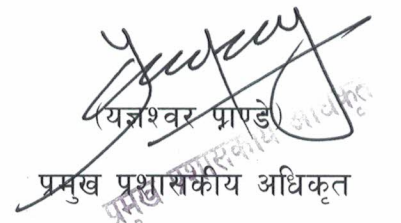 (यज्ञश्वर पाण्डे)
प्रमुख प्रशासकीय अधिकृत
प्रमुख प्रशासकीय अधिकृत